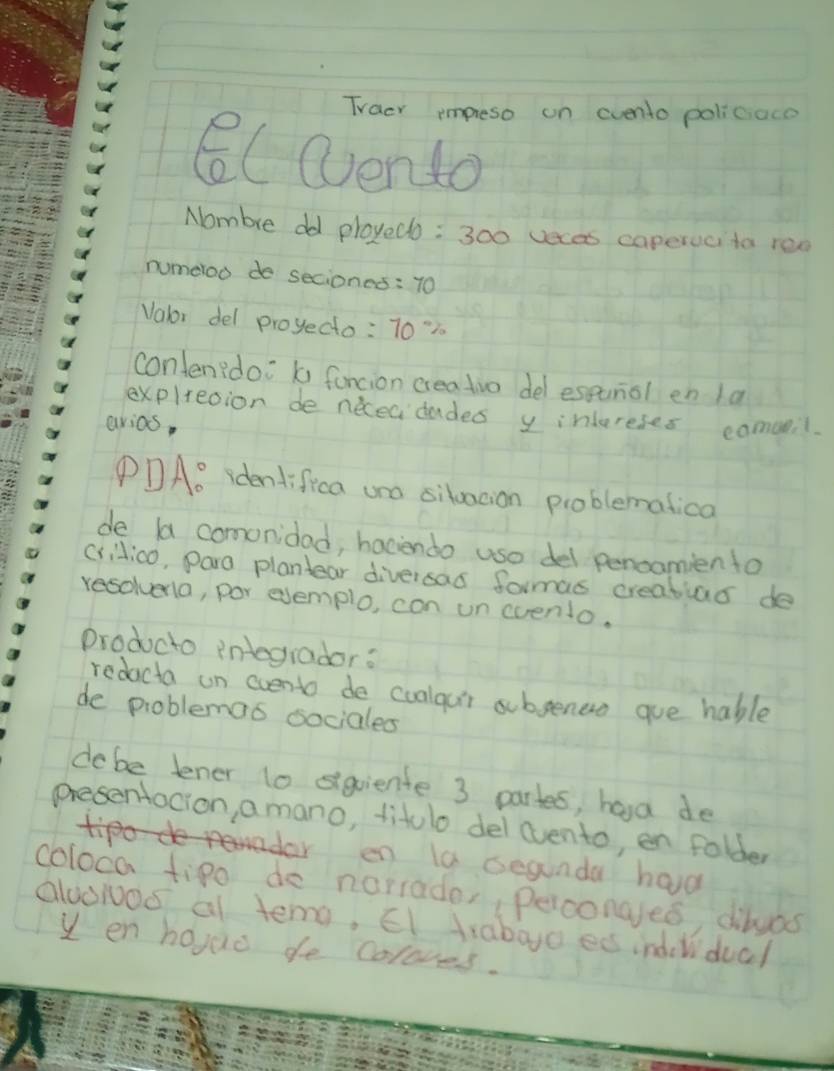 Traer impreso un cuento policiaco
El Cuento
Nombre del ployecto: 300 veces caperucita roo
numeroo de seciones: 10
Valor del proyecto: 10%
contenido: la funcion creativo del español en la
explresion de neceidades y intereses comunit-
arios.
PDA: identifica una situacion problematica
de la comonidad, haciendo uso del pensamiento
critico, para plantear diversas formas creativas de
resolverla, por ejemplo, con un cuento.
producto integrador:
redacta un cuento de cualquir subgenero que hable
de problemas sociales
debe tener lo siguiente 3 partes, hoja de
presentacion, a mano, titulo del cuento, en folder
tipo de narrador en la segunda hoja
coloca tipo de narrador, personajes, dibujos
alusivos al tema. El trabajo es individual
y en hojas de colores.